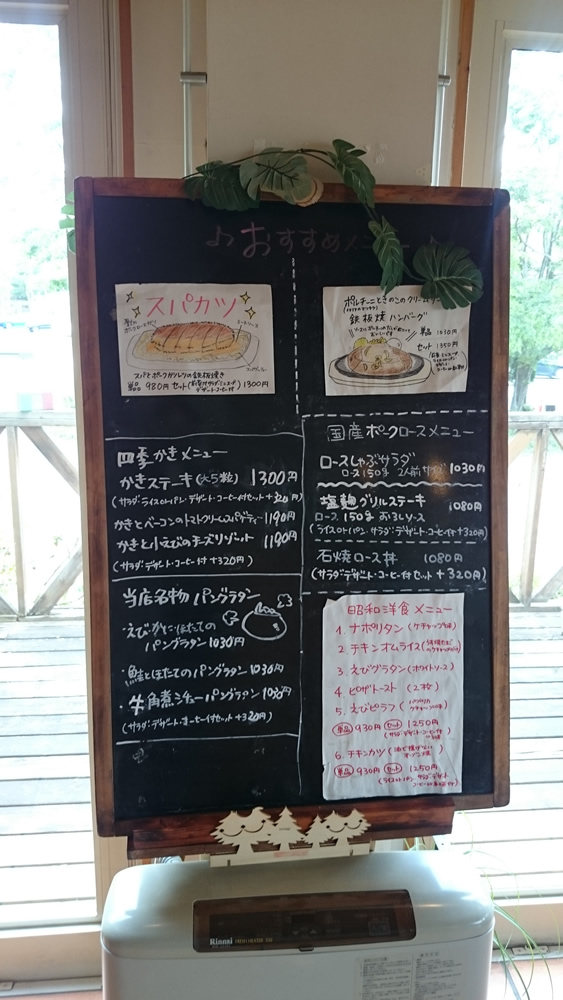 ♪おすすめメニュー♪
スパカツ
スパとポークカツレツの鉄板焼き
単品 980円 セット 1300円
ポルチーニときのこのクリームソース
鉄板焼ハンバーグ
単品 1030円
セット 1350円
四季かきメニュー
かきステーキ(大5粒) 1300円
(サラダ・ライスorパン・デザート・コーヒー付セット+320円)
かきとベーコンのトマトクリームスパゲティー 1190円
かきと小えびのチーズリゾット 1190円
(サラダ・デザート・コーヒー付 +320円)
当店名物 パングラタン
・えび・かに・ほたての
パングラタン 1030円
・鮭とほたてのパングラタン 1030円
・牛角煮シチューパングラタン 1030円
(サラダ・デザート・コーヒー付セット+320円)
国産ポークロースメニュー
ロースしゃぶサラダ
ロース150g 2人前サイズ 1030円
塩麹グリルステーキ 1080円
ロース 150g おろしソース
(ライスorパン・サラダ・デザート・コーヒー付+320円)
石焼ロース丼 1080円
(サラダ・デザート・コーヒー付セット+320円)
昭和洋食メニュー
1. ナポリタン (ケチャップ味)
2. チキンオムライス
3. えびグラタン (ホワイトソース)
4 ピザトースト (2枚)
5. えびピラフ
単品 930円 セット 1250円
(サラダ・デザート・コーヒー付
6. チキンカツ
単品 930円 セット 1250円
Rinnai